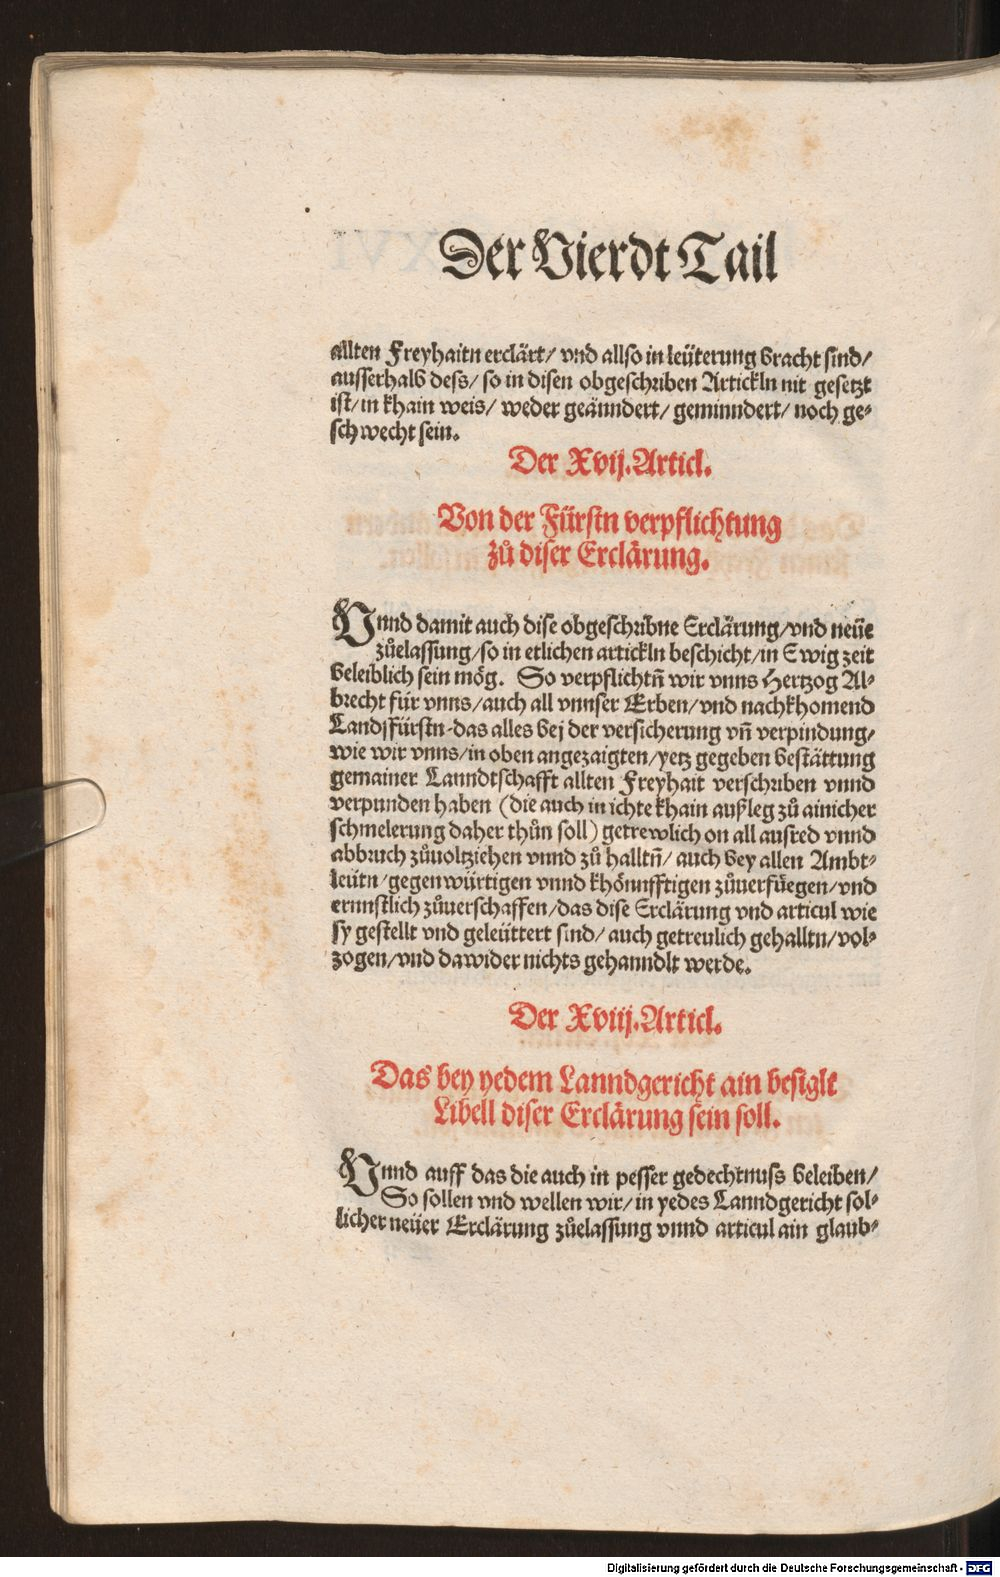 Der Vierdt Tail
allten Freyhaitn erclärt/ vnd allso in leüterung bracht sind/
ausserhalb dess/ so in disen obgeschriben Artickln nit gesetzt
ist/ in khain weis/ weder geänndert/ geminndert/ noch ge-
schwecht sein.
Der Xvij. Articl.
Von der Fürstn verpflichtung
zů diser Erclärung.
Vnnd damit auch dise obgeschribne Erclärung/ vnd neüe
zůelassung/ so in etlichen artickln beschicht/ in Ewig zeit
beleiblich sein mög. So verpflichtñ wir vnns Hertzog Al-
brecht für vnns/ auch all vnnser Erben/ vnd nachkhomend
Landßfürstn-das alles bej der versicherung vñ verpindung/
wie wir vnns/ in oben angezaigten/ yetz gegeben bestättung
gemainer Lanndtschafft allten Freyhait verschriben vnnd
verpunden haben (die auch in ichte khain außleg zů ainicher
schmelerung daher thůn soll) getrewlich on all ausred vnnd
abbruch zůuoltziehen vnnd zů halltñ/ auch bey allen Ambt-
leütn/ gegenwürtigen vnnd khönnfftigen zůuerfüegen/ vnd
ernnstlich zůuerschaffen/ das dise Erclärung vnd articul wie
sy gestellt vnd geleüttert sind/ auch getreulich gehalltn/ vol-
zogen/ vnd dawider nichts gehanndlt werde.
Der Xviij. Articl.
Das bey yedem Lanndgericht ain besiglt
Libell diser Erclärung sein soll.
Vnnd auff das die auch in pesser gedechtnuss beleiben/
So sollen vnd wellen wir/ in yedes Lanndgericht sol-
licher neüer Erclärung zůelassung vnnd articul ain glaub-
Digitalisierung gefördert durch die Deutsche Forschungsgemeinschaft - DFG